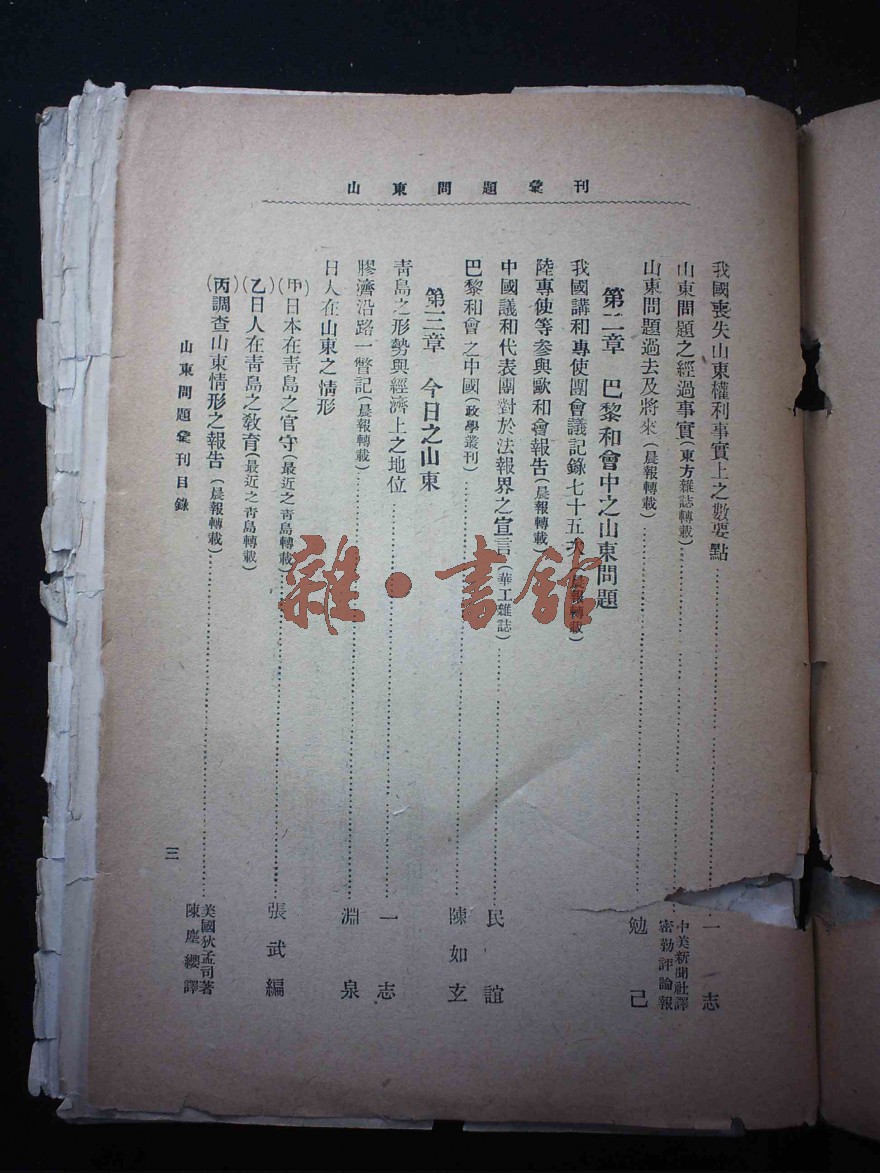 山東問題彙刊
我國喪失山東權利事實上之數要點……一志
山東問題之經過事實(東方雜誌轉載)……密勒評論報 中美新聞社譯
山東問題過去及將來(晨報轉載)……勉己
第二章 巴黎和會中之山東問題
我國講和專使團會議記錄七十五次(晨報轉載)
陸專使等參與歐和會報告(晨報轉載)
中國議和代表團對於法報界之宣言(華工雜誌)……民誼
巴黎和會之中國(政學叢刊)……陳如玄
第三章 今日之山東
青島之形勢與經濟上之地位……一志
膠濟沿路一瞥記(晨報轉載)……淵泉
日人在山東之情形
(甲)日本在青島之官守(最近之青島轉載)……張武編
(乙)日人在青島之教育(最近之青島轉載)
(丙)調查山東情形之報告(晨報轉載)……美國狄孟司著 陳塵纓譯
山東問題彙刊目錄
三
雜·書館